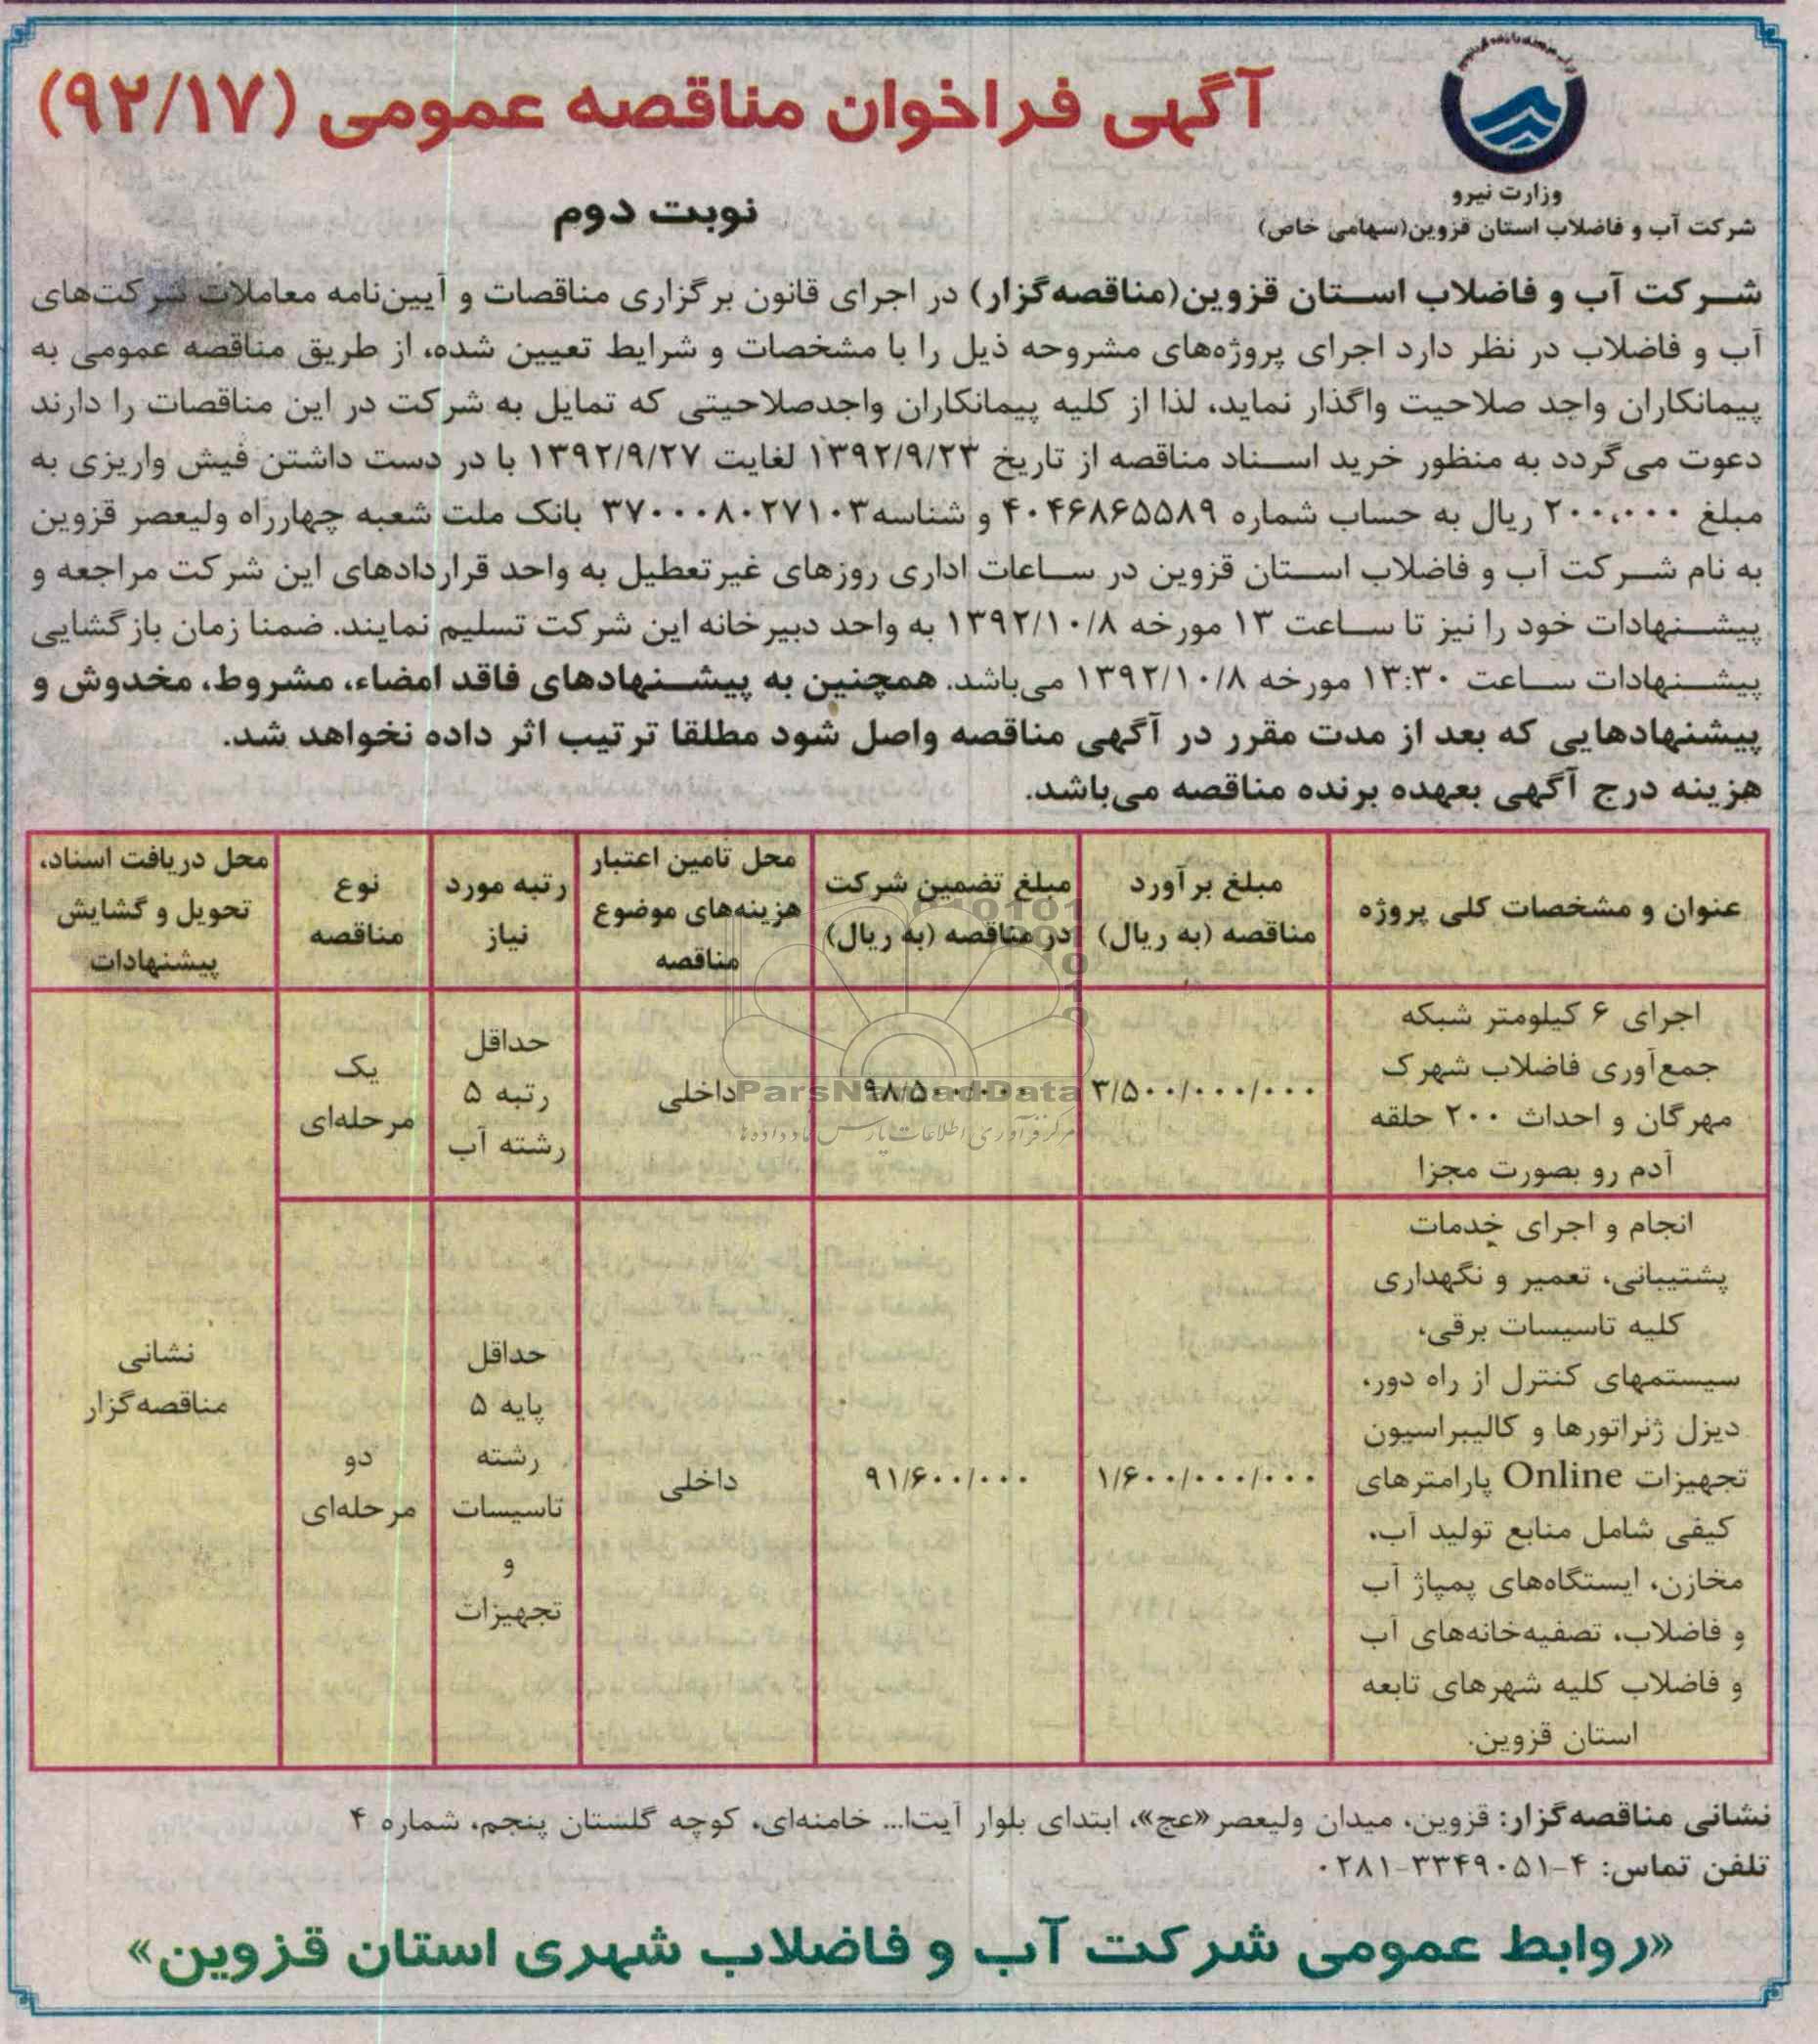 آگهی فراخوان مناقصه عمومی (۹۲/۱۷)
وزارت نیرو
شرکت آب و فاضلاب استان قزوین(سهامی خاص)
نوبت دوم
شرکت آب و فاضلاب استان قزوین(مناقصه‌گزار) در اجرای قانون برگزاری مناقصات و آیین‌نامه معاملات شرکت‌های
آب و فاضلاب در نظر دارد اجرای پروژه‌های مشروحه ذیل را با مشخصات و شرایط تعیین شده، از طریق مناقصه عمومی به
پیمانکاران واجد صلاحیت واگذار نماید، لذا از کلیه پیمانکاران واجدصلاحیتی که تمایل به شرکت در این مناقصات را دارند
دعوت می‌گردد به منظور خرید اسناد مناقصه از تاریخ ۱۳۹۲/۹/۲۳ لغایت ۱۳۹۲/۹/۲۷ با در دست داشتن فیش واریزی به
مبلغ ۲۰۰،۰۰۰ ریال به حساب شماره ۴۰۴۶۸۶۵۵۸۹ و شناسه۳۷۰۰۰۸۰۲۷۱۰۳ بانک ملت شعبه چهارراه ولیعصر قزوین
به نام شرکت آب و فاضلاب استان قزوین در ساعات اداری روزهای غیرتعطیل به واحد قراردادهای این شرکت مراجعه و
پیشنهادات خود را نیز تا ساعت ۱۳ مورخه ۱۳۹۲/۱۰/۸ به واحد دبیرخانه این شرکت تسلیم نمایند. ضمنا زمان بازگشایی
پیشنهادات ساعت ۱۳:۳۰ مورخه ۱۳۹۲/۱۰/۸ می‌باشد. همچنین به پیشنهادهای فاقد امضاء، مشروط، مخدوش و
پیشنهادهایی که بعد از مدت مقرر در آگهی مناقصه واصل شود مطلقا ترتیب اثر داده نخواهد شد.
هزینه درج آگهی بعهده برنده مناقصه می‌باشد.
عنوان و مشخصات کلی پروژه
مبلغ برآورد
مناقصه (به ریال)
مبلغ تضمین شرکت
در مناقصه (به ریال)
محل تامین اعتبار
هزینه‌های موضوع
مناقصه
رتبه مورد
نیاز
نوع
مناقصه
محل دریافت اسناد،
تحویل و گشایش
پیشنهادات
اجرای ۶ کیلومتر شبکه
جمع‌آوری فاضلاب شهرک
مهرگان و احداث ۲۰۰ حلقه
آدم رو بصورت مجزا
۳/۵۰۰/۰۰۰/۰۰۰
۹۸/۵۰۰/۰۰۰
داخلی
حداقل
رتبه ۵
رشته آب
یک
مرحله‌ای
انجام و اجرای خدمات
پشتیبانی، تعمیر و نگهداری
کلیه تاسیسات برقی،
سیستمهای کنترل از راه دور،
دیزل ژنراتورها و کالیبراسیون
تجهیزات Online پارامترهای
کیفی شامل منابع تولید آب،
مخازن، ایستگاه‌های پمپاژ آب
و فاضلاب، تصفیه‌خانه‌های آب
و فاضلاب کلیه شهرهای تابعه
استان قزوین.
۱/۶۰۰/۰۰۰/۰۰۰
۹۱/۶۰۰/۰۰۰
داخلی
حداقل
پایه ۵
رشته
تاسیسات
و
تجهیزات
دو
مرحله‌ای
نشانی
مناقصه‌گزار
ParsNamadData
مرکز فرآوری اطلاعات پارس نماد داده‌ها
نشانی مناقصه‌گزار: قزوین، میدان ولیعصر«عج»، ابتدای بلوار آیت‌ا... خامنه‌ای، کوچه گلستان پنجم، شماره ۴
تلفن تماس: ۴-۳۳۴۹۰۵۱-۰۲۸۱
«روابط عمومی شرکت آب و فاضلاب شهری استان قزوین»